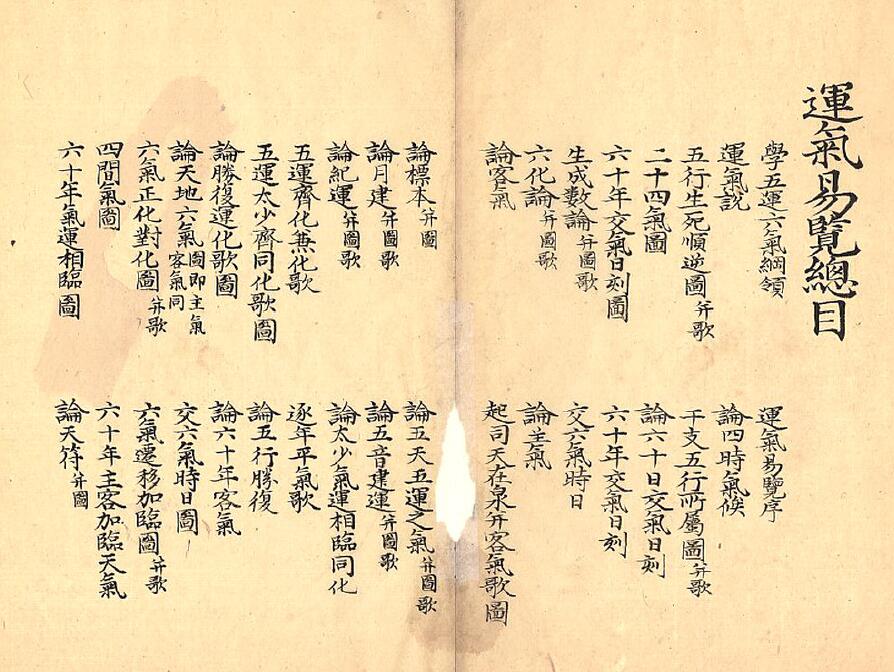 運氣易覽總目
學五運六氣綱領
運氣易覽序
運氣說
論四時氣候
五行生死順逆圖并歌
干支五行所屬圖并歌
二十四氣圖
論六十日交氣日刻
六十年交氣日刻圖
六十年交氣日刻
生成数論并圖歌
交六氣時日
六化論并圖歌
論主氣
論客氣
起司天在泉并客氣歌圖
論標本并圖
論五天五運之氣并圖歌
論月建并圖歌
論五音建運并圖歌
論紀運并圖歌
論太少氣運相臨同化
五運齊化兼化歌
逐年平氣歌
五運太少齊同化歌圖
論五行勝復
論勝復運化歌圖
論六十年客氣
論天地六氣圖即主氣客氣同
交六氣時日圖
六氣正化對化圖并歌
六氣遷移加臨圖并歌
四間氣圖
六十年主客加臨天氣
六十年氣運相臨圖
論天符并圖